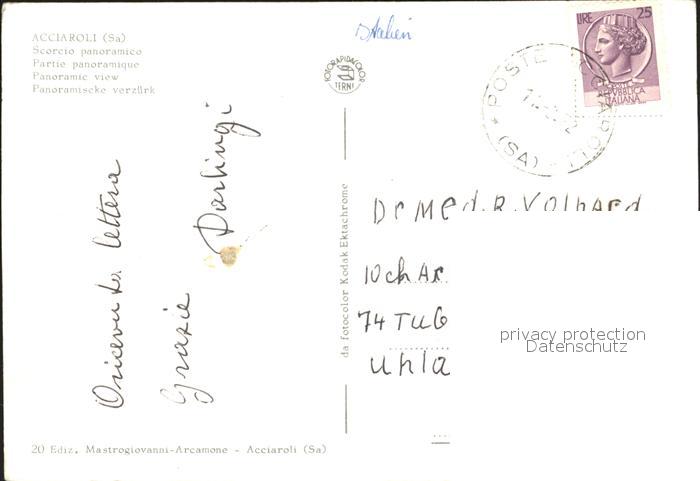 ACCIAROLI (Sa)
Scorcio panoramico
Partie panoramique
Panoramic view
Panoramiscke verzürk
Italien
FOTORAPIDACOLOR
TERNI
LIRE 25
REPVBBLICA
ITALIANA
POSTE
(SA)
lettera
Grazie
da fotocolor Kodak Ektachrome
Dr Med. R. Volhard
10ch Ar
74 TUB
Uhla
privacy protection
Datenschutz
20 Ediz. Mastrogiovanni-Arcamone - Acciaroli (Sa)